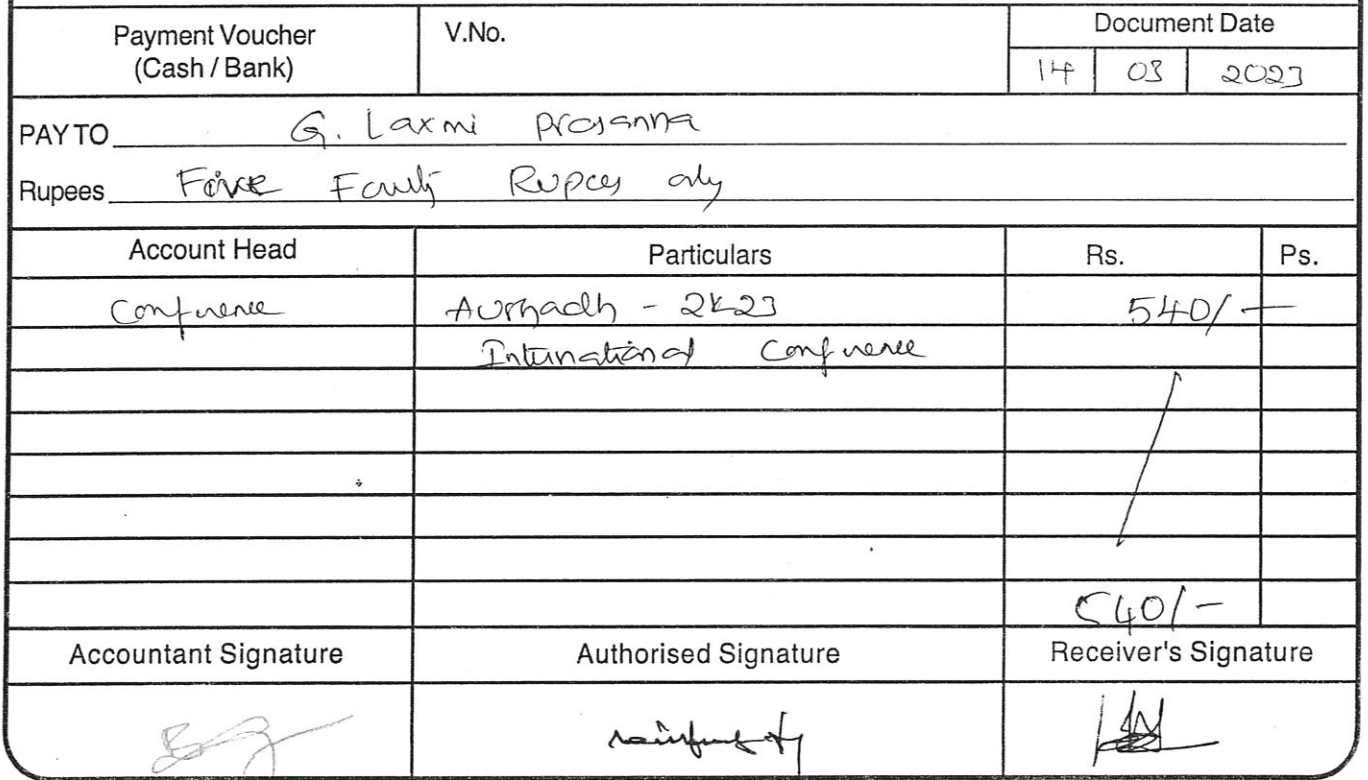 Payment Voucher
(Cash / Bank)
V.No.
Document Date
14 03 2023
PAY TO G. Laxmi Prasanna
Rupees Five Rupees only
Account Head Particulars Rs. Ps.
Conference - 2k23 540/-
International Conference
540/-
Accountant Signature Authorised Signature Receiver's Signature